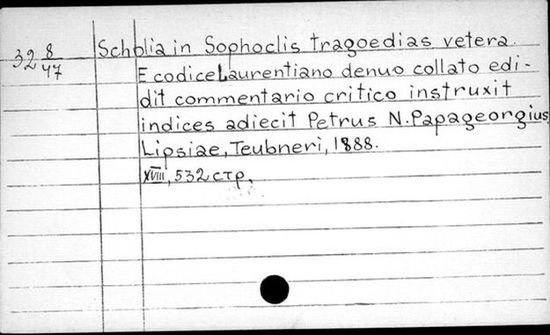 32 8/47 Scholia in Sophoclis tragoedias vetera.
E codice Laurentiano denuo collato edi-
dit commentario critico instruxit
indices adiecit Petrus N. Papageorgius
Lipsiae, Teubneri, 1888.
XVIII, 532 стр.